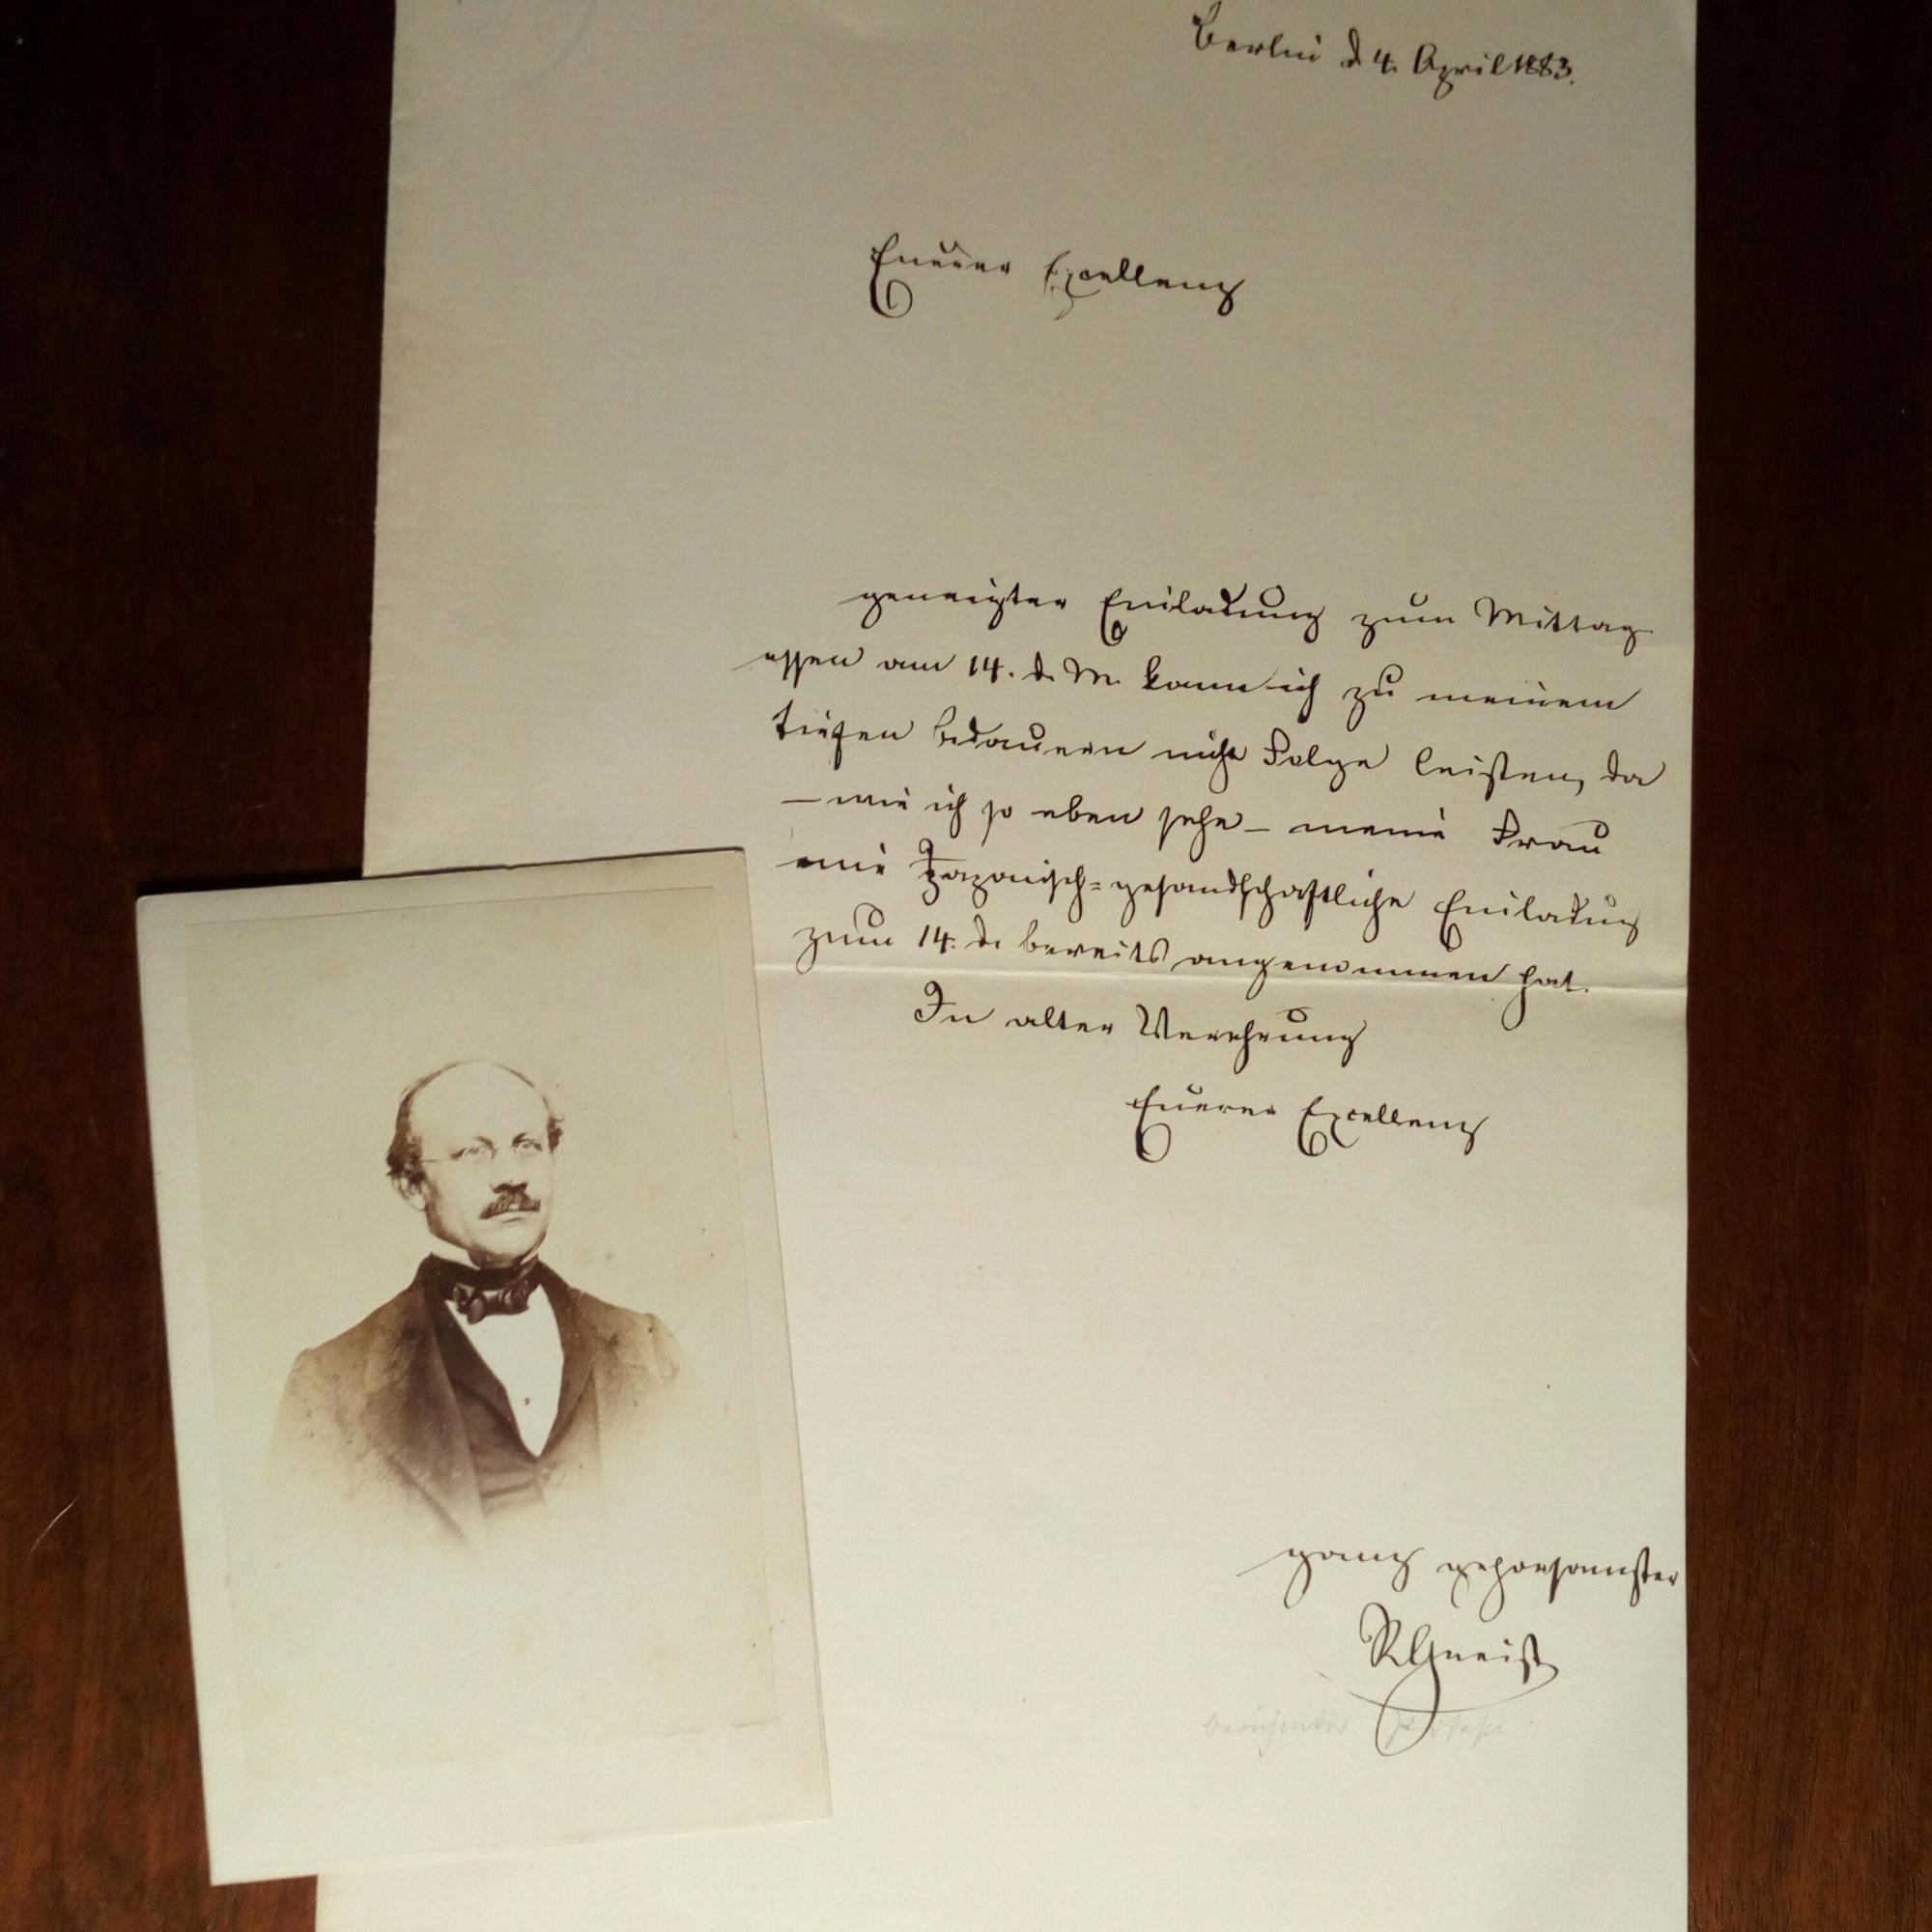 Berlin d 4. April 1883.
Euerer Excellenz
geneigter Einladung zum Mittag
essen am 14. d. M. kann ich zu meinem
tiefen Bedauern nicht Folge leisten, da
– wie ich so eben sehe – meine Frau
eine Japanisch=gesandschaftliche Einladung
zum 14. d. bereits angenommen hat.
In alter Verehrung
Euerer Excellenz
ganz gehorsamster
RGneist
berühmter